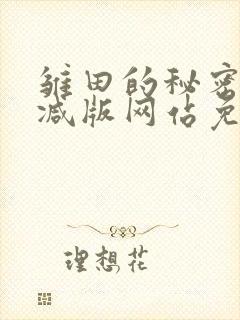 雏田的秘密
减版网佔免
理想花